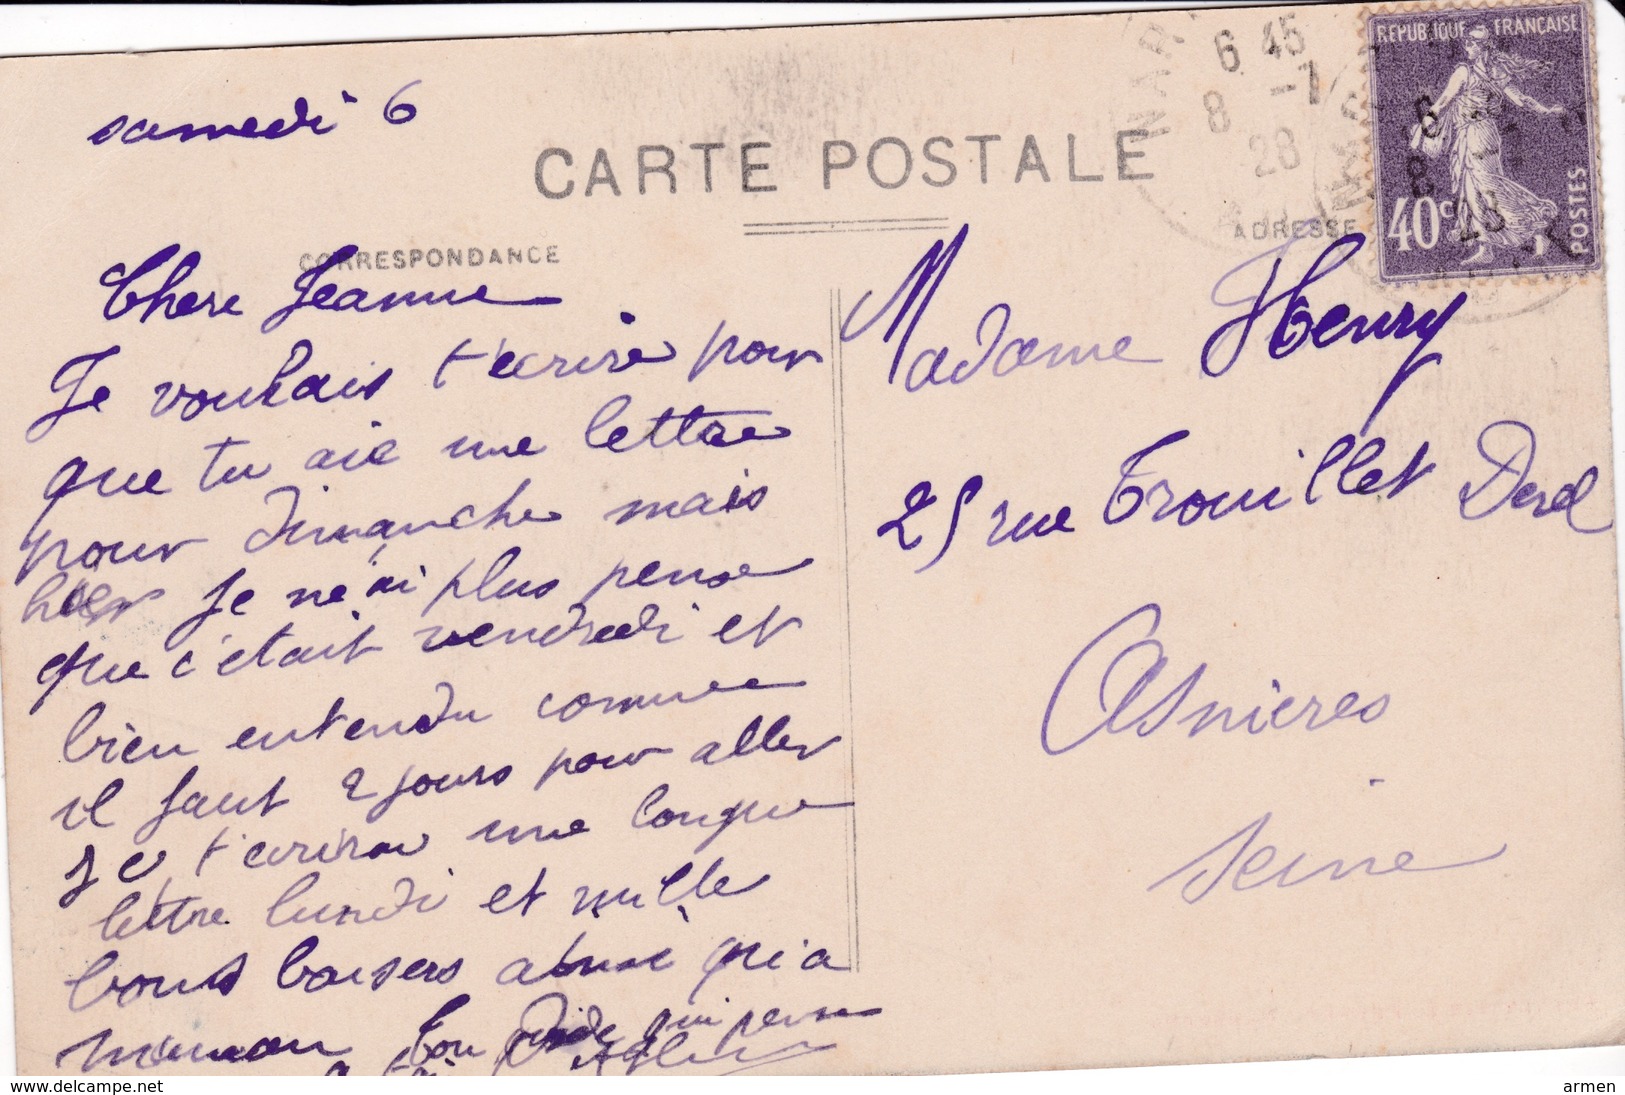 samedi 6
CARTE POSTALE
CORRESPONDANCE
ADRESSE
NAR
6 45
8 -7
28
REPUBLIQUE FRANÇAISE
40c
POSTES
Chere Jeanne
Je voulais t'ecrire pour
que tu aie une lettre
pour dimanche mais
hier Je ne ai plus pense
que c'etait vendredi et
bien entendu comme
il faut 2 jours pour aller
Je t'ecrirai une longue
lettre lundi et mille
bons baisers ainsi qu'a
maman Ton qui pense
a toi
Madame Henry
25 rue Trouillet Derel
Asnieres
Seine
armen